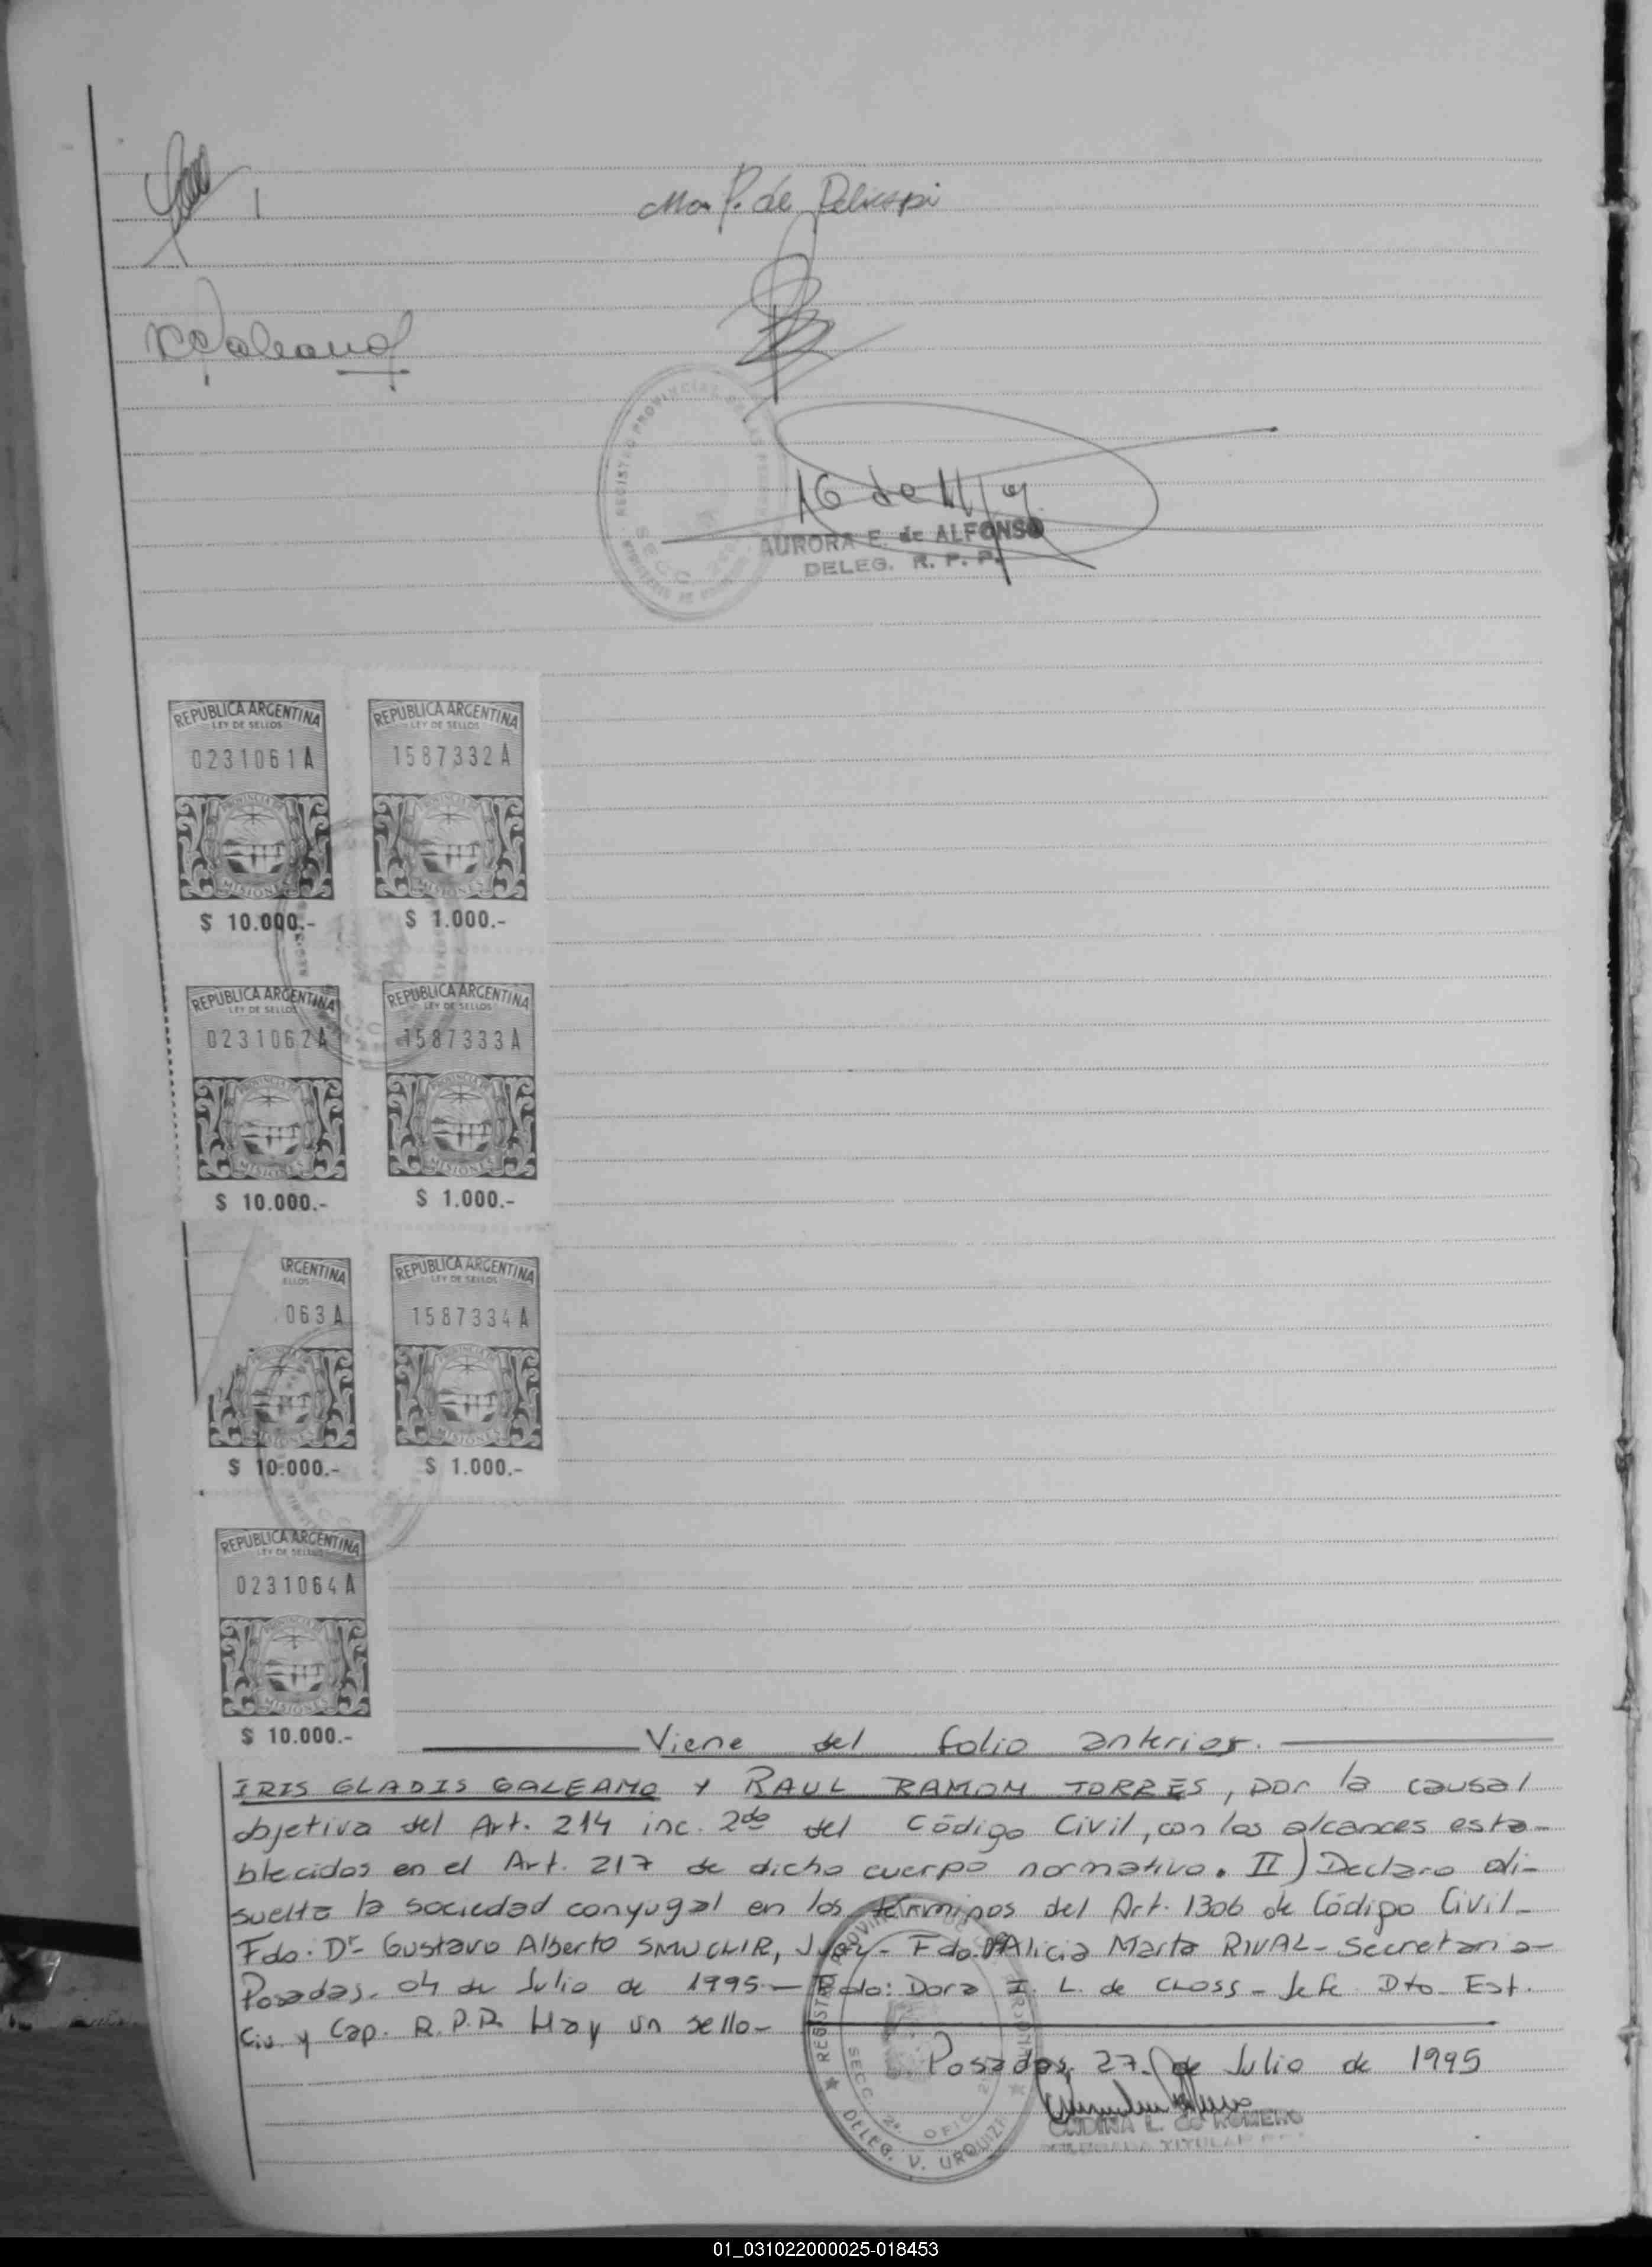 16 de 11/9
AURORA E. de ALFONSO
DELEG. R. P. P.
REPUBLICA ARGENTINA
LEY DE SELLOS
0231061A
PROVINCIA DE
MISIONES
$ 10.000.-
REPUBLICA ARGENTINA
LEY DE SELLOS
1587332A
PROVINCIA DE
MISIONES
$ 1.000.-
REPUBLICA ARGENTINA
LEY DE SELLOS
0231062A
PROVINCIA DE
MISIONES
$ 10.000.-
REPUBLICA ARGENTINA
LEY DE SELLOS
1587333A
PROVINCIA DE
MISIONES
$ 1.000.-
RGENTINA
ELLOS
063A
$ 10.000.-
REPUBLICA ARGENTINA
LEY DE SELLOS
1587334A
PROVINCIA DE
MISIONES
$ 1.000.-
REPUBLICA ARGENTINA
LEY DE SELLOS
0231064A
PROVINCIA DE
MISIONES
$ 10.000.-
Viene del folio anterior.
IRIS GLADIS GALEANO Y RAUL RAMON TORRES, por la causal
objetiva del Art. 214 inc. 2do del Código Civil, con los alcances esta-
blecidos en el Art. 217 de dicho cuerpo normativo. II) Declaro di-
suelta la sociedad conyugal en los términos del Art. 1306 de Código Civil-
Fdo. Dr- Gustavo Alberto Juez- Fdo. Alicia Marta RIVAL- Secretaria-
Posadas, 04 de Julio de 1995- Fdo: Dora I. L. de CLOSS- Jefe Dto. Est.
Civ. y Cap. R.P.P. Hay un sello-
Posadas, 27 de Julio de 1995
L. de ROMERO
TITULAR
DELEG. V. URQUIZA
01_031022000025-018453